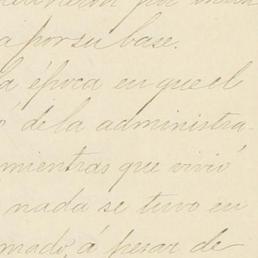 por
a por su base.
la época en que el
de la administra-
mientras que vivió
nada se tuvo en
á pesar de